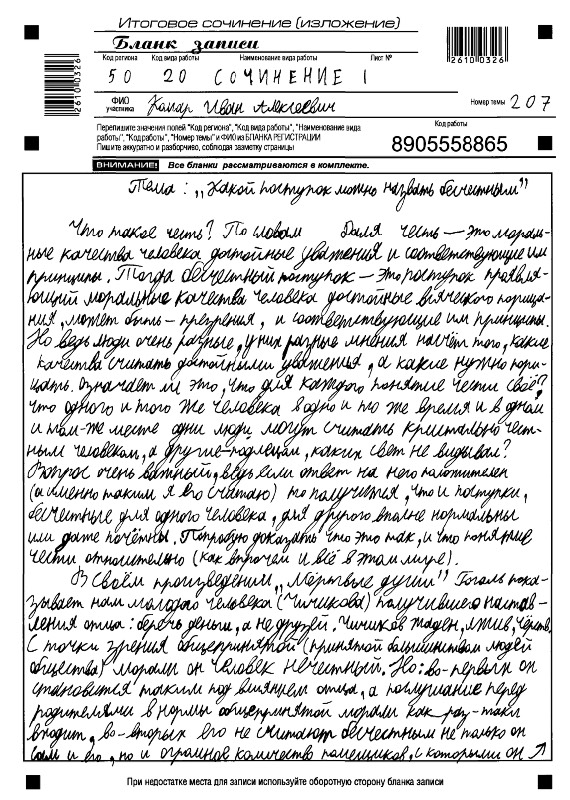 Итоговое сочинение (изложение)
Бланк записи
2610 0326
2610 0326
Код региона Код вида работы Наименование вида работы Лист №
50 20 СОЧИНЕНИЕ 1
ФИО участника Иван Алексеевич Номер темы 207
Перепишите значения полей "Код региона", "Код вида работы", "Наименование вида
работы", "Код работы", "Номер темы" и ФИО из БЛАНКА РЕГИСТРАЦИИ
Пишите аккуратно и разборчиво, соблюдая заметку страницы
Код работы
8905558865
ВНИМАНИЕ! Все бланки рассматриваются в комплекте.
Тема: „Какой поступок можно назвать бесчестным"
Что такое честь? По словам Даля честь — это мораль-
ные качества человека достойные уважения и соответствующие им
принципы. Тогда бесчестный поступок — это поступок проявля-
ющий моральные качества человека достойные всяческого порица-
ния, может быть – презрения, и соответствующие им принципы.
Но ведь люди очень разные, у них разные мнения насчёт того, какие
качества считать достойными уваженья, а какие нужно пори-
цать. Означает ли это, что для каждого понятие чести своё?
что одного и того же человека в одно и то же время и в одном
и том-же месте одни люди могут считать кристально чест-
ным человеком, а другие-подлецом, каких свет не видывал?
Вопрос очень важный, ведь если ответ на него положителен
(а именно таким я его считаю) то получится, что и поступки,
бесчестные для одного человека, для другого вполне нормальны
или даже почётны. Попробую доказать что это так, и что понятие
чести относительно (как впрочем и всё в этом мире).
В своём произведении „Мёртвые души" Гоголь пока-
зывает нам молодого человека (Чичикова) получившего настав-
ления отца: беречь деньги, а не друзей. Чичиков жаден, лжив, чёрств.
С точки зрения общепринятой (принятой большинством людей
общества) морали он человек нечестный. Но: во-первых он
становится таким под влиянием отца, а послушание перед
родителями в нормы общепринятой морали как раз-таки
входит, во-вторых его не считают бесчестным не только он
сам и его, но и огромное количество помещиков, с которыми он
При недостатке места для записи используйте оборотную сторону бланка записи